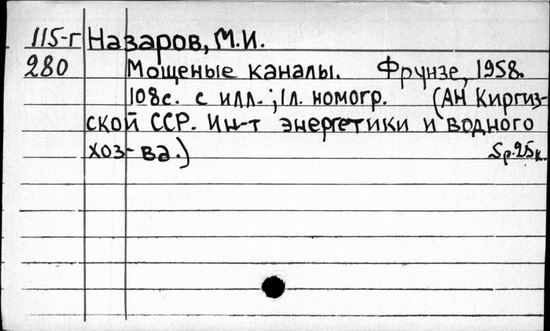 115-г Назаров, М.И.
280 Мощеные каналы. Фрунзе, 1958.
108с. с илл.; 1л. номогр. (АН Киргиз-
ской ССР. Ин-т энергетики и водного
хоз-ва.) 5р.25к.